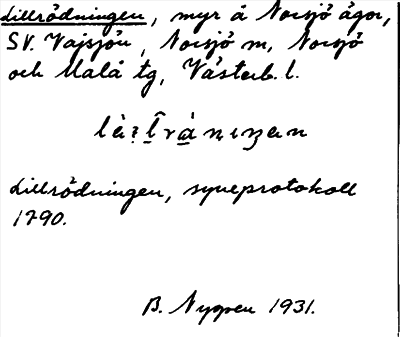 Lillrödningen, myr å Norsjö ägor,
SV. Vajsjön, Norsjö sn, Norsjö
och Malå tg, Västerb. l.
Lillrödningen, syneprotokoll
1790.
B. Nygren 1931.